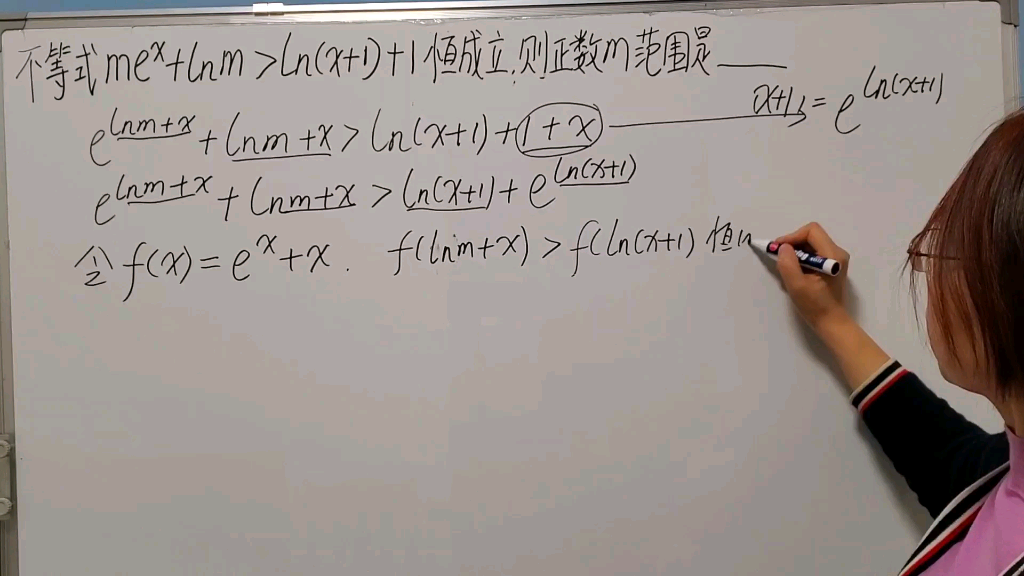 不等式me^x+lnm>ln(x+1)+1恒成立,则正数m范围是____
e^{lnm+x}+lnm+x>ln(x+1)+1+x x+1=e^{ln(x+1)}
e^{lnm+x}+lnm+x>ln(x+1)+e^{ln(x+1)}
令f(x)=e^x+x. f(lnm+x)>f(ln(x+1) 恒